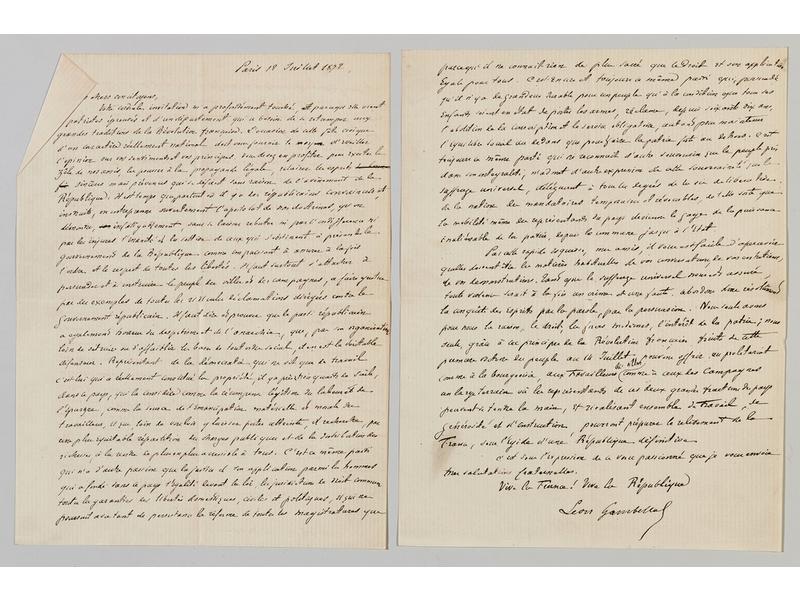 Paris 18 Juillet 1872.
chers concitoyens,
Votre cordiale invitation m'a profondément touché, et parce qu'elle vient
patriotes éprouvés et d'un département qui a besoin de se retremper aux
grandes traditions de la Révolution française. L'occasion de cette fête civique
d'un caractère réellement national doit nous fournir le moyen d'éveiller
l'opinion sur vos sentiments et vos principes. Vous devez en profiter pour exciter le
zèle de nos amis, les pousser à la propagande légale, éclairer les esprits
sincères mais prévenus qui se défient sans raison de l'avènement de la
République. Il est temps que partout où il y a des républicains convaincus et
instruits, on entreprenne ouvertement l'apostolat de nos doctrines, qu'on
démontre, infatigablement sans se laisser rebuter ni par l'indifférence ni
par les injures l'inanité et la sottise de ceux qui s'obstinent à présenter le
gouvernement de la République comme impuissant à assurer à la fois
l'ordre et le respect de toutes les libertés. Il faut surtout s'attacher à
persuader et à instruire le peuple des villes et des campagnes, à faire justice
par des exemples de toutes les ridicules déclamations dirigées contre le
Gouvernement républicain. Il faut dire et prouver que le parti républicain
a également horreur du despotisme et de l'anarchie, que, par son organisation
loin de détruire ou d'affaiblir les bases de tout ordre social, il en est le véritable
défenseur. Représentant de la démocratie qui ne vit que de travail
c'est lui qui a réellement constitué la propriété, il y a près de quatre-vingts ans,
dans ce pays, qui la considère comme la récompense légitime de l'activité de
l'épargne, comme la source de l'émancipation matérielle et morale des
travailleurs, et qui, loin de vouloir y laisser porter atteinte, il recherche, par
une plus équitable répartition des charges publiques et de la distribution des
richesses à la rendre de plus en plus accessible à tous. C'est ce même parti
qui n'a d'autre passion que la justice et son application parmi les hommes
qui a fondé dans ce pays l'égalité devant la loi, les juridictions de droit commun
toutes les garanties des libertés domestiques, civiles et politiques, et qui ne
poursuit avec tant de persistance la réforme de toutes les magistratures que
parce qu'il ne connaît rien de plus sacré que le Droit et son application
égale pour tous. C'est encore et toujours ce même parti qui, persuadé
qu'il n'y a de grandeur durable pour un peuple qu'à la condition que tous ses
enfants soient en état de porter les armes, réclame, depuis soixante dix ans,
l'abolition de la conscription et le service obligatoire, autant pour maintenir
l'équilibre social au dedans que pour faire la patrie forte au dehors. C'est
toujours ce même parti qui ne reconnaît d'autre souverain que le peuple pris
dans son intégralité, n'admet d'autre expression de cette souveraineté que le
suffrage universel, déléguant à tous les degrés de la vie
de la nation des mandataires temporaires et révocables, de telle sorte que
la mobilité même des représentants du pays devienne le gage de la puissance
inaliénable de la patrie, depuis la commune jusqu'à l'État.
Par cette rapide esquisse, mes amis, il vous est facile d'apercevoir
quelles doivent être les matières habituelles de vos conversations, de vos entretiens,
de vos démonstrations. Tandis que le suffrage universel nous est assuré,
toute violence serait à la fois un crime et une faute, abordons donc résolument
la conquête des esprits par la parole, par la persuasion. Nous seuls avons
pour nous la raison, le droit, les forces modernes, l'intérêt de la patrie; nous
seuls, grâce à ces principes de la Révolution française sortis de cette
première victoire du peuple au 14 Juillet pouvons offrir au prolétariat
comme à la bourgeoisie, aux Travailleurs des villes comme à ceux des Campagnes
un large terrain où les représentants de ces deux grandes fractions du pays
peuvent se tendre la main, et rivalisant ensemble de Travail, de
Générosité et d'instruction, pourront préparer le relèvement de la
France, sous l'égide d'une République définitive.
c'est sous l'expression de ce vœu passionné que je vous envoie
mes salutations fraternelles.
Vive la France! Vive la République
Léon Gambetta